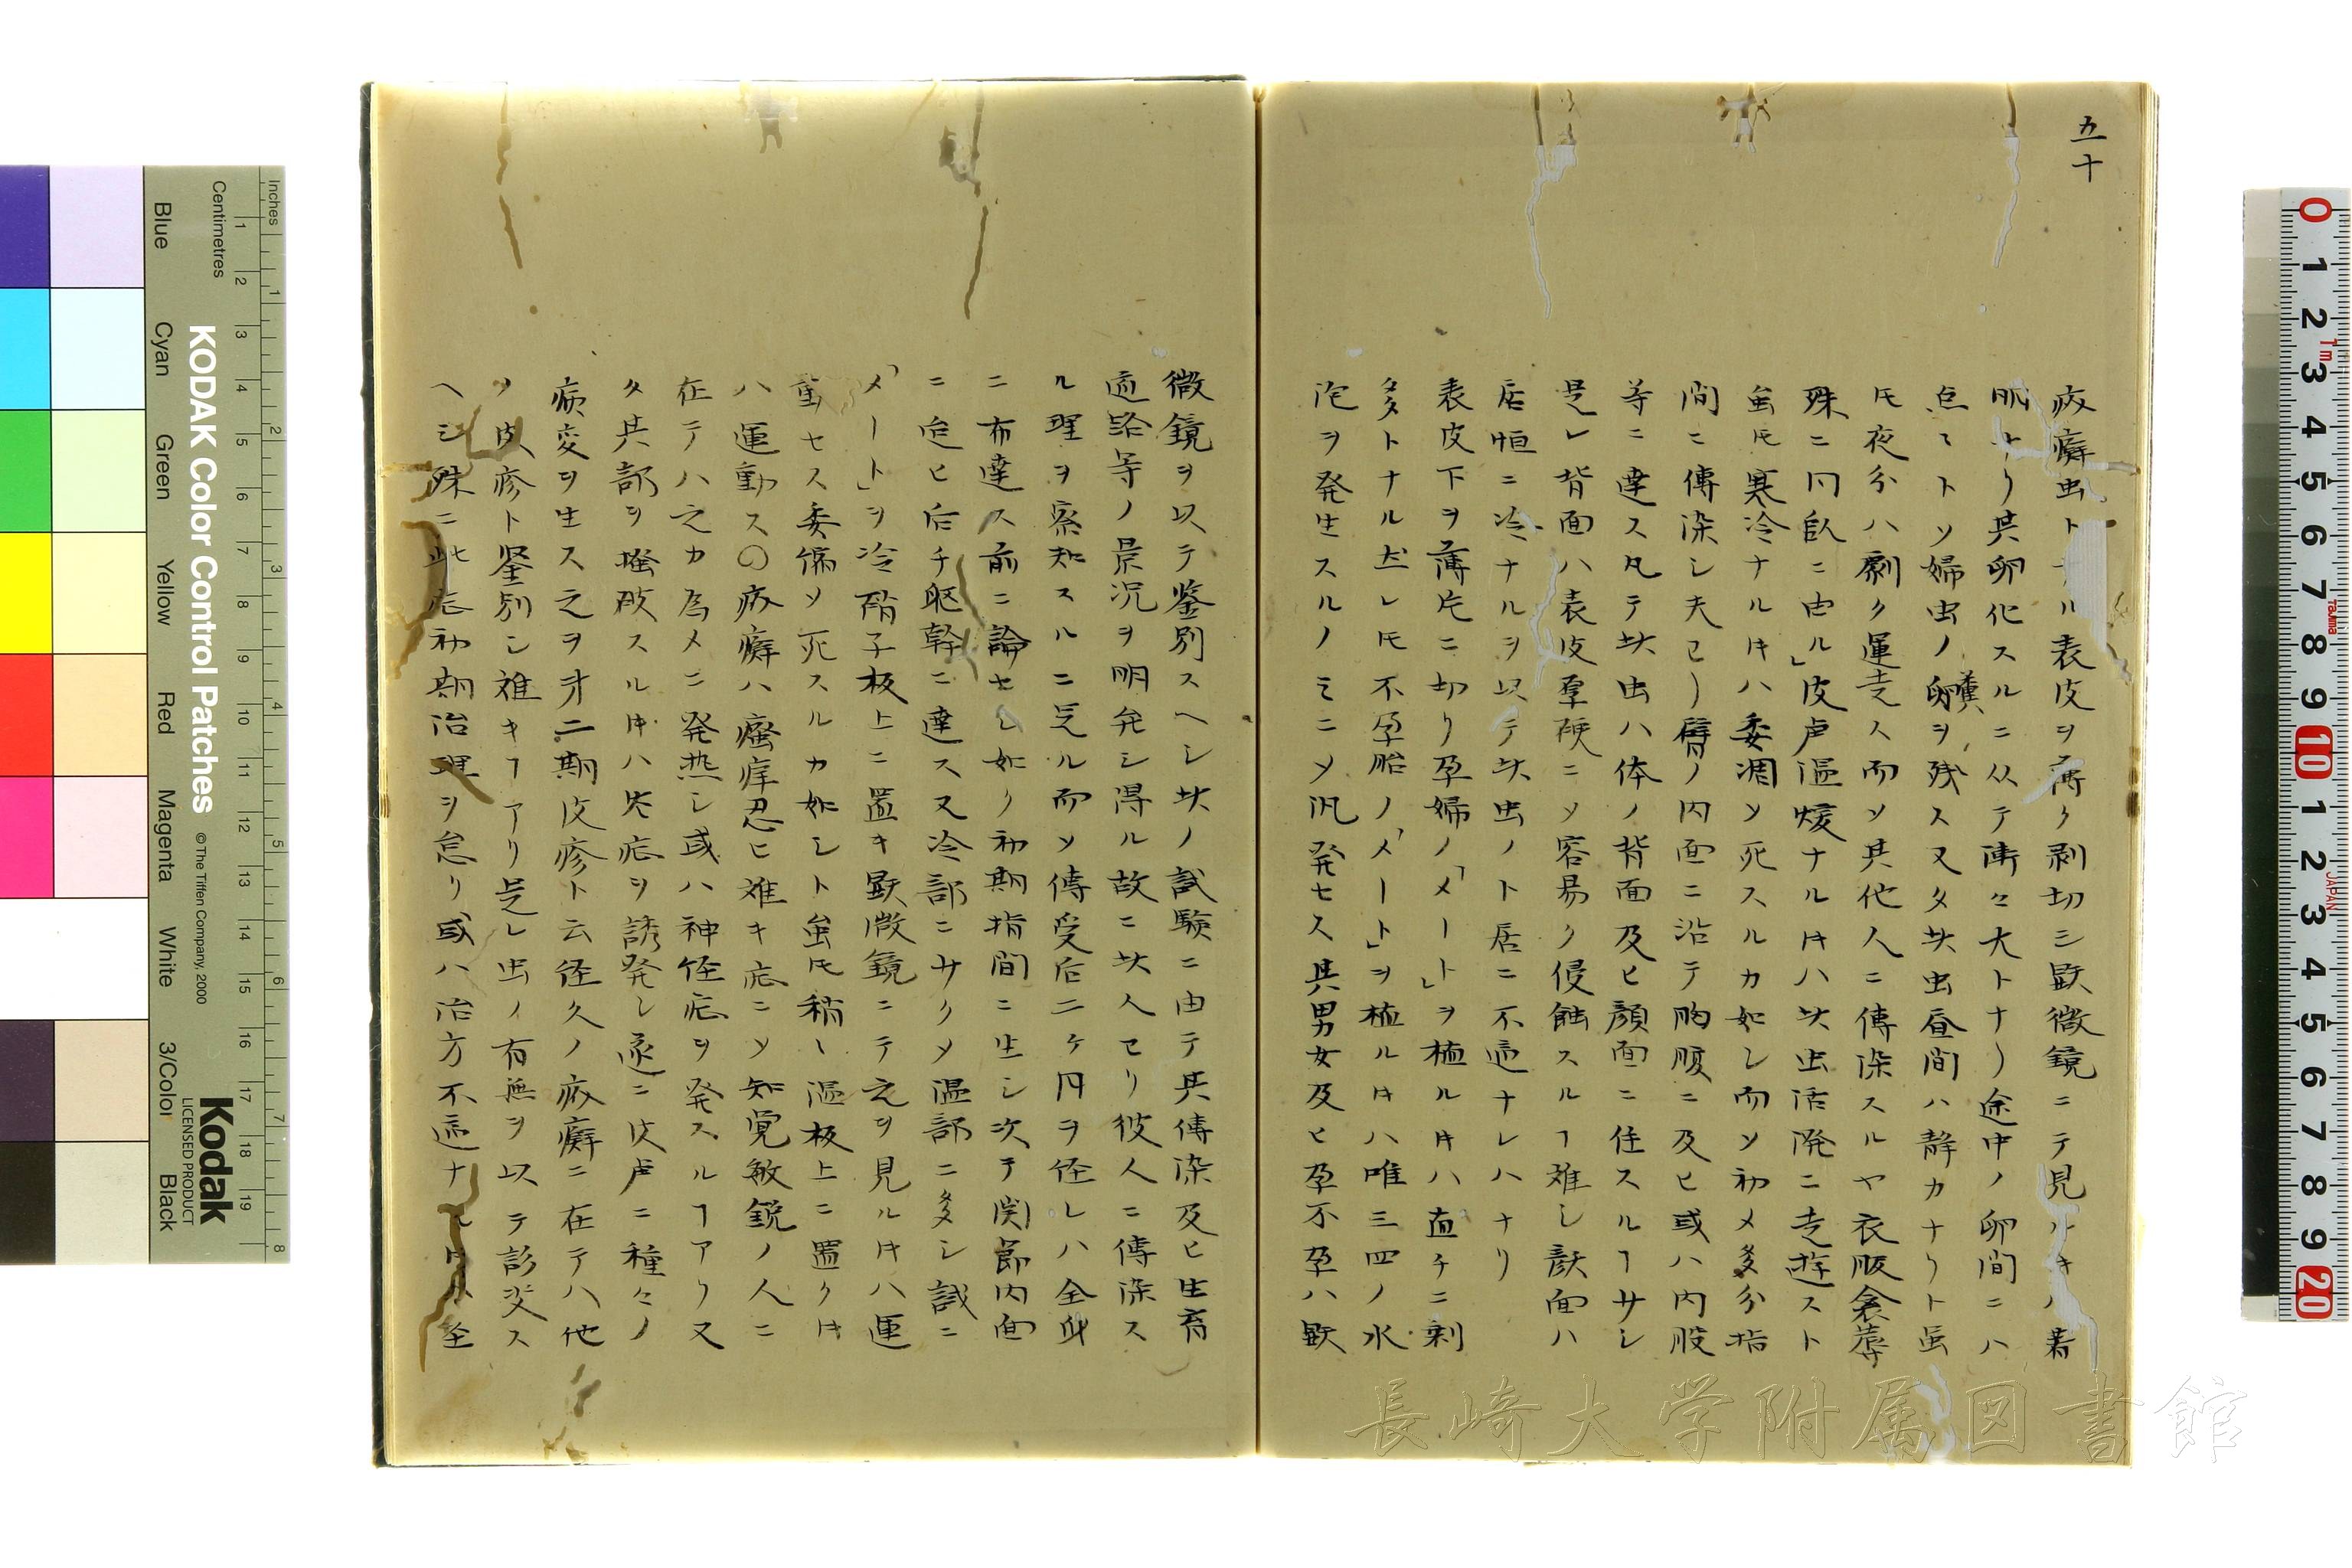 五十
病癬虫トナル表皮ヲ薄ク剥切シ顕微鏡ニテ見ルキハ著
眀ナリ其卵化スルニ从テ漸々大トナリ途中ノ卵間ニハ
点々トソ婦虫ノ卵糞ヲ残ス又タ此虫昼間ハ静カナリト虽
𪜈夜分ハ劇ク運走ス而ソ其他人ニ傳染スルヤ衣服衾蓐
殊ニ同臥ニ由ル」皮膚温煖ナルキハ此虫活溌ニ走遊スト
虽𪜈寒冷ナルキハ委凋ソ死スルカ如シ而ソ初メ多分指
間ニ傳染シ夫ヨリ臂ノ内面ニ沿テ胸腹ニ及ヒ或ハ内股
等ニ達ス凡テ此虫ハ体ノ背面及ヒ顔面ニ住スルヿサシ
是レ背面ハ表皮厚硬ニソ容易ク侵蝕スルヿ難シ顔面ハ
居恒ニ冷ナルヲ以テ此虫ノト居ニ不適ナレハナリ
表皮下ヲ薄片ニ切リ孕婦ノ「メート」ヲ植ルキハ直チニ刺
多トナル去レ𪜈不孕胎ノ「メート」ヲ植ルキハ唯三四ノ水
疱ヲ発生スルノミニソ汎発セス其男女及ヒ孕不孕ハ顕
微鏡ヲ以テ鑒別スヘシ此ノ試験ニ由テ其傳染及ヒ生育
適路等ノ景況ヲ明発シ得ル故ニ此人ヨリ彼人ニ傳染ス
ル理ヲ察知スルニ足ル而ソ傳受后二ケ月ヲ径レハ全身
ニ布達ス前ニ論セシ如ク初期指間ニ生シ次テ関節内面
ニ迨ヒ后チ躯幹ニ達ス又冷部ニサクメ温部ニ多シ試ニ
「メート」ヲ冷硝子板上ニ置キ顕微鏡ニテ之ヲ見ルキハ運
動セス委傷ソ死スルカ如シト虽𪜈稍々温板上ニ置クキ
ハ運動ス〇病癬ハ瘙痒忍ヒ難キ症ニソ知覚敏鋭ノ人ニ
在テハ之カ為メニ発熱シ或ハ神径症ヲ発スルヿアリ又
タ其部ヲ掻破スルキハ炎症ヲ誘発シ遂ニ皮膚ニ種々ノ
病変ヲ生ス之ヲ才二期皮疹ト云径久ノ病癬ニ在テハ他
ノ皮疹ト鑒別シ難キヿアリ是レ虫ノ有無ヲ以テ診定ス
ヘシ殊ニ此症初期治理ヲ怠リ或ハ治方不適ナ
長崎大学附属図書館
KODAK Color Control Patches
© The Tiffen Company, 2000
Kodak
LICENSED PRODUCT
Inches
Centimetres
Blue
Cyan
Green
Yellow
Red
Magenta
White
3/Color
Black